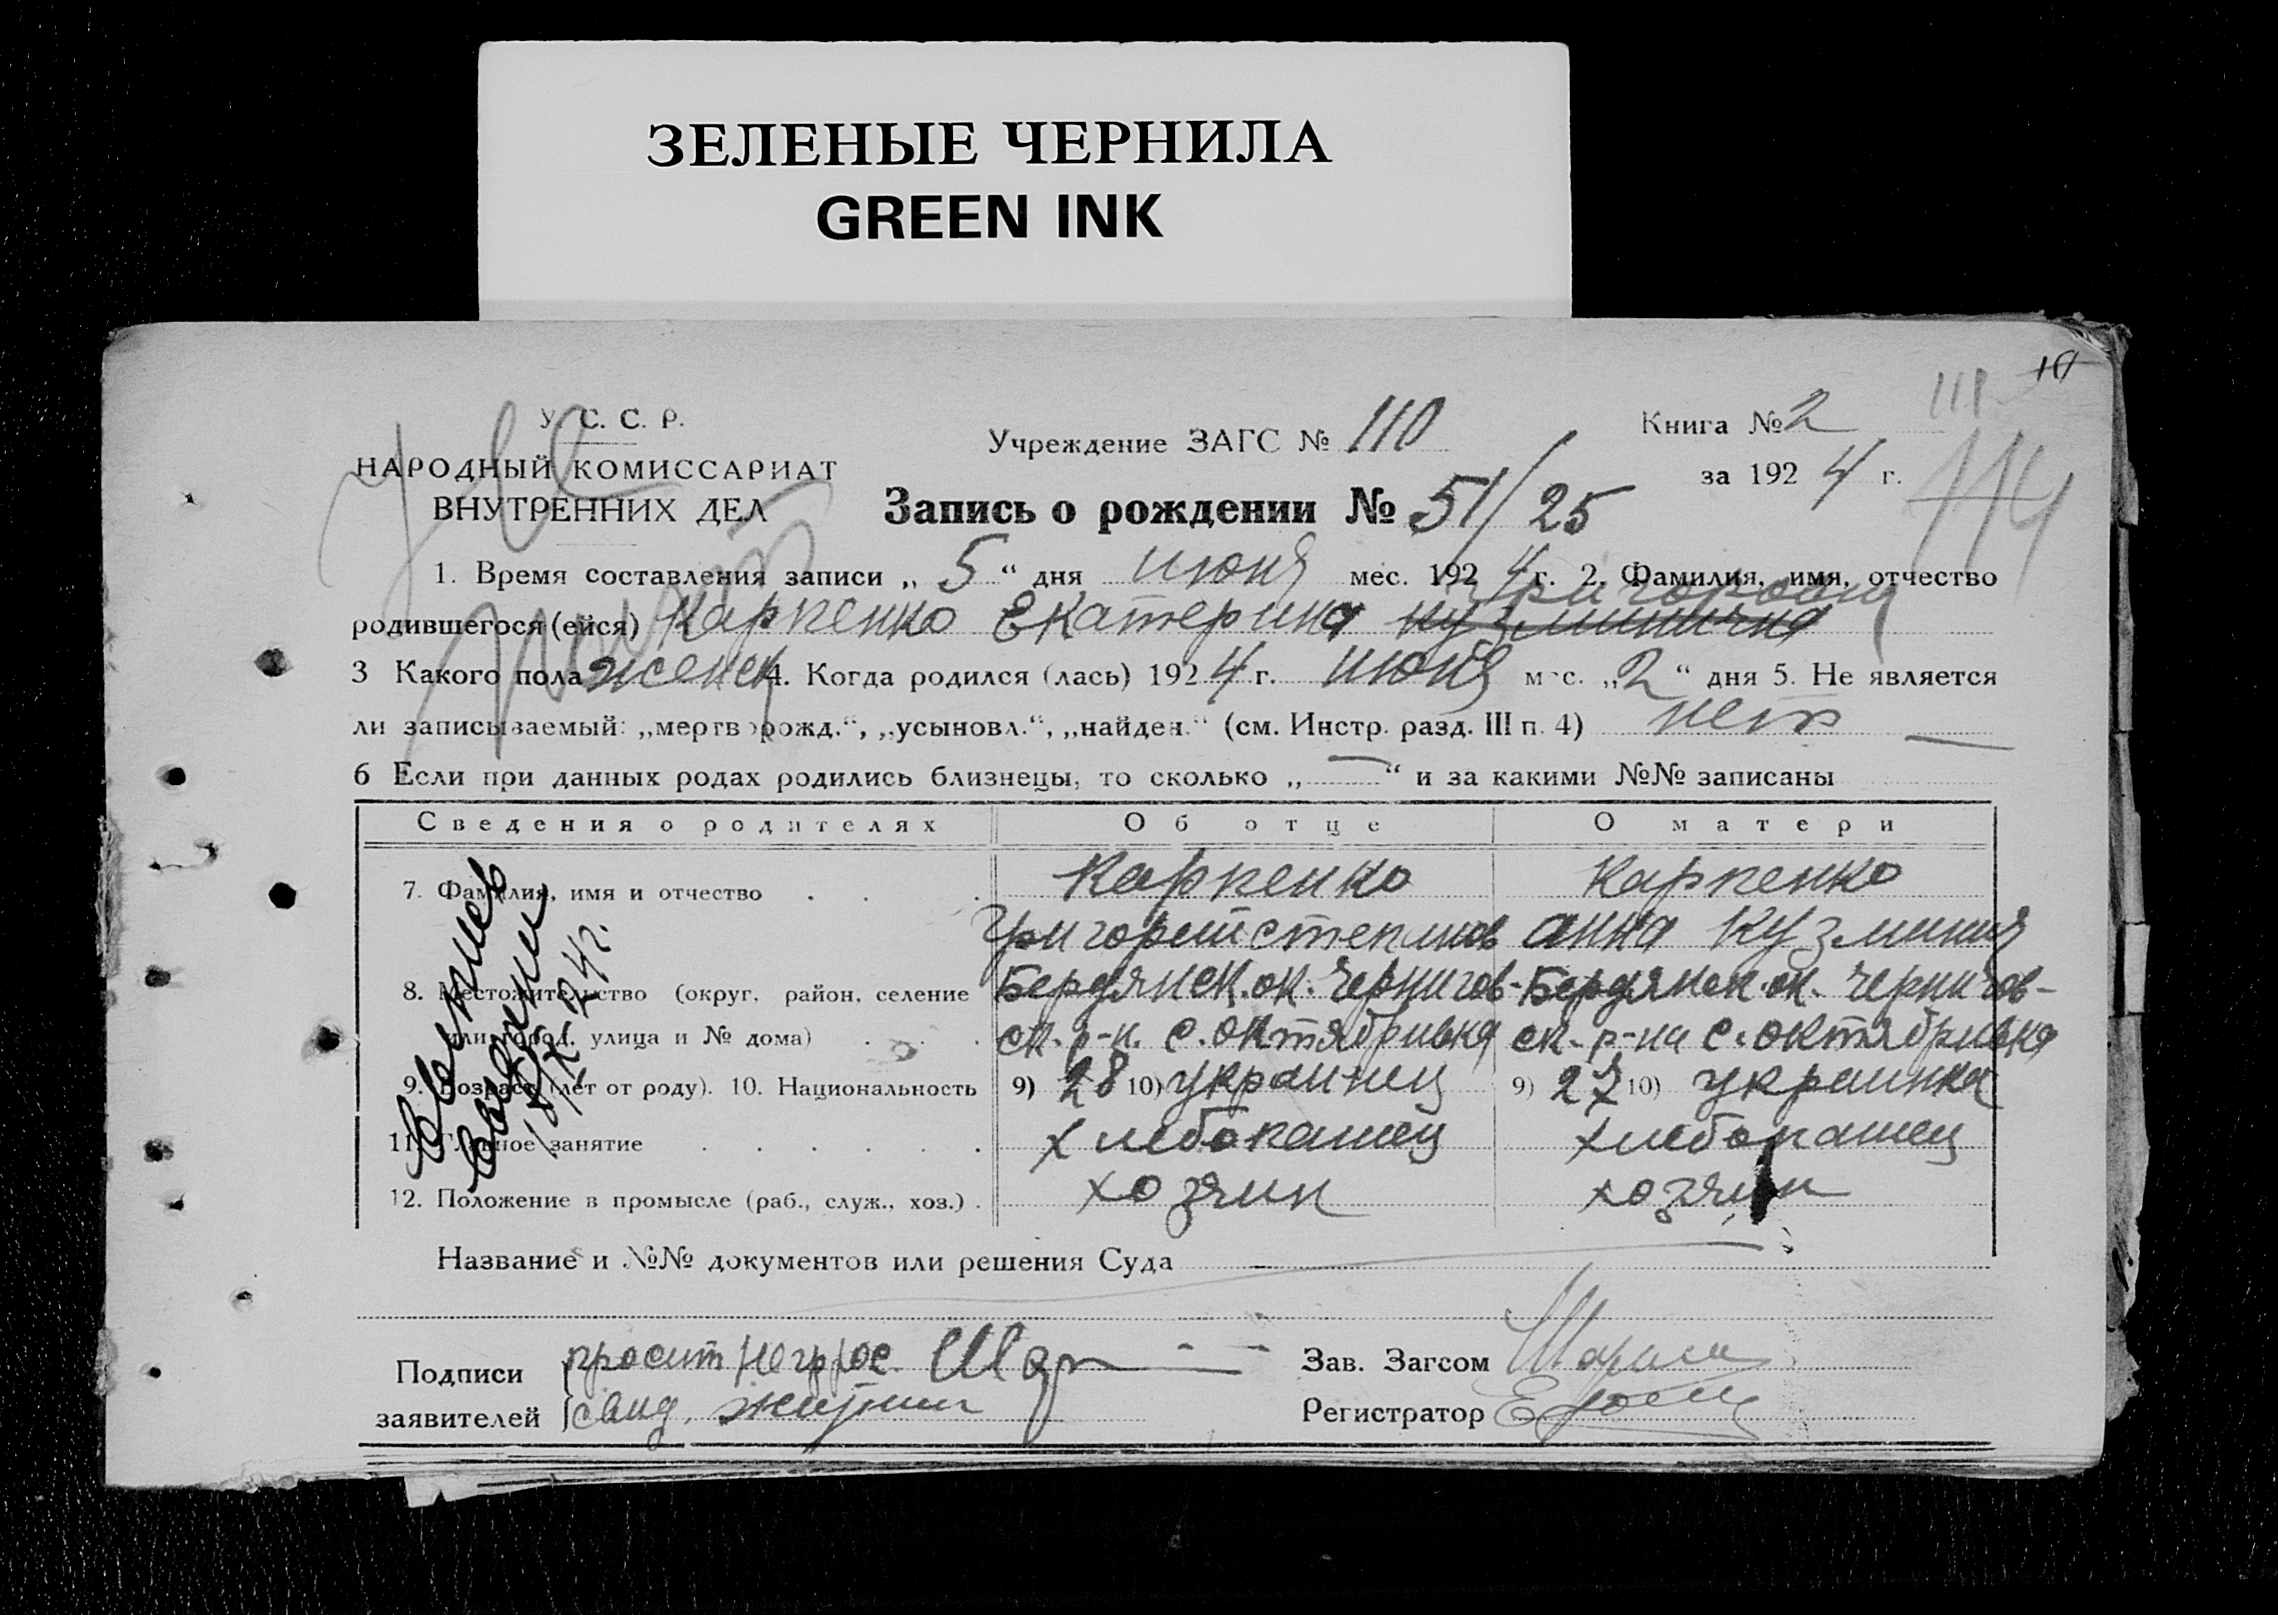 ЗЕЛЕНЫЕ ЧЕРНИЛА
GREEN INK
У. С. С. Р.
НАРОДНЫЙ КОМИССАРИАТ
ВНУТРЕННИХ ДЕЛ
Учреждение ЗАГС № 110
Книга № 2
за 1924 г.
111
114
Запись о рождении № 51/25
1. Время составления записи „5“ дня июня мес. 1924 г. 2. Фамилия, имя, отчество
родившегося (ейся) Карпенко Екатерина кузминична
3 Какого пола женск 4. Когда родился (лась) 1924 г. июня мес. „2“ дня 5. Не является
ли записываемый: „мертворожд.“, „усыновл.“, „найден.“ (см. Инстр. разд. III п. 4) нет
6 Если при данных родах родились близнецы, то сколько „—“ и за какими №№ записаны
Сведения о родителях Об отце О матери
7. Фамилия, имя и отчество Карпенко Карпенко
Григорий степанов анна кузминич
8. Местожительство (округ, район, селение Бердянск. ок. Чернигов- Бердянск. ок. чернигов-
или город, улица и № дома) ск. р-н. с. октябривка ск. р-на с. октябривка
9. Возраст (лет от роду). 10. Национальность 9) 28 10) украинец 9) 27 10) украинка
11. Главное занятие хлебопашец хлебопашец
12. Положение в промысле (раб., служ., хоз.) хозяин хозяин
Название и №№ документов или решения Суда
Подписи
заявителей
Зав. Загсом
Регистратор